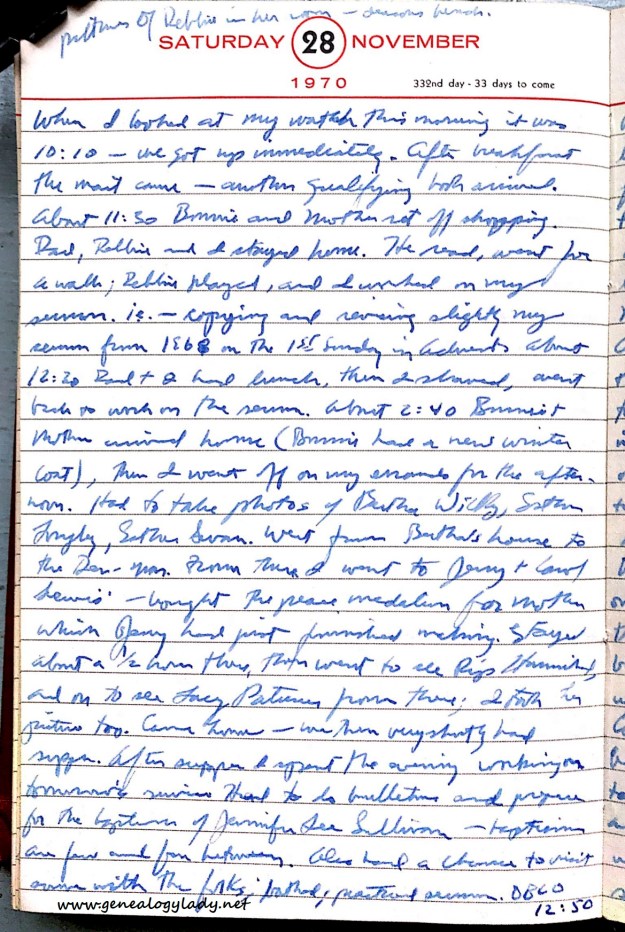 pictures of Debbie in her room — deacons bench.
SATURDAY 28 NOVEMBER
1970
332nd day - 33 days to come
When I looked at my watch this morning it was
10:10 — we got up immediately. After breakfast
the mail came — another qualifying book arrived.
About 11:30 Bonnie and Mother set off shopping.
Dad, Debbie and I stayed home. He read, went for
a walk; Debbie played, and I worked on my
sermon. ie. — copying and revising slightly my
sermon from 1968 on the 1st Sunday in Advent. About
12:20 Dad + I had lunch, then I showered, went
back to work on the sermon. About 2:40 Bonnie +
Mother arrived home (Bonnie had a new winter
coat), then I went off on my errands for the after-
noon. Had to take photos of Bertha Esther
Esther Swan. Went from Bertha's house to
the From there I went to Jerry + Carol
Lewis' — bought the peace medallion for Mother
which Jerry had just finished making. Stayed
about a 1/2 hour there, then went to see
and on to see from there; I took her
picture too. Came home — we then very shortly had
supper. After supper I spent the evening working on
tomorrow's service. Had to do bulletins and prepare
for the baptism of Jennifer Lee Sullivan — baptisms
are few and far between. Also had a chance to visit
some with the folks; bathed, practiced sermon.
12:50
www.genealogylady.net